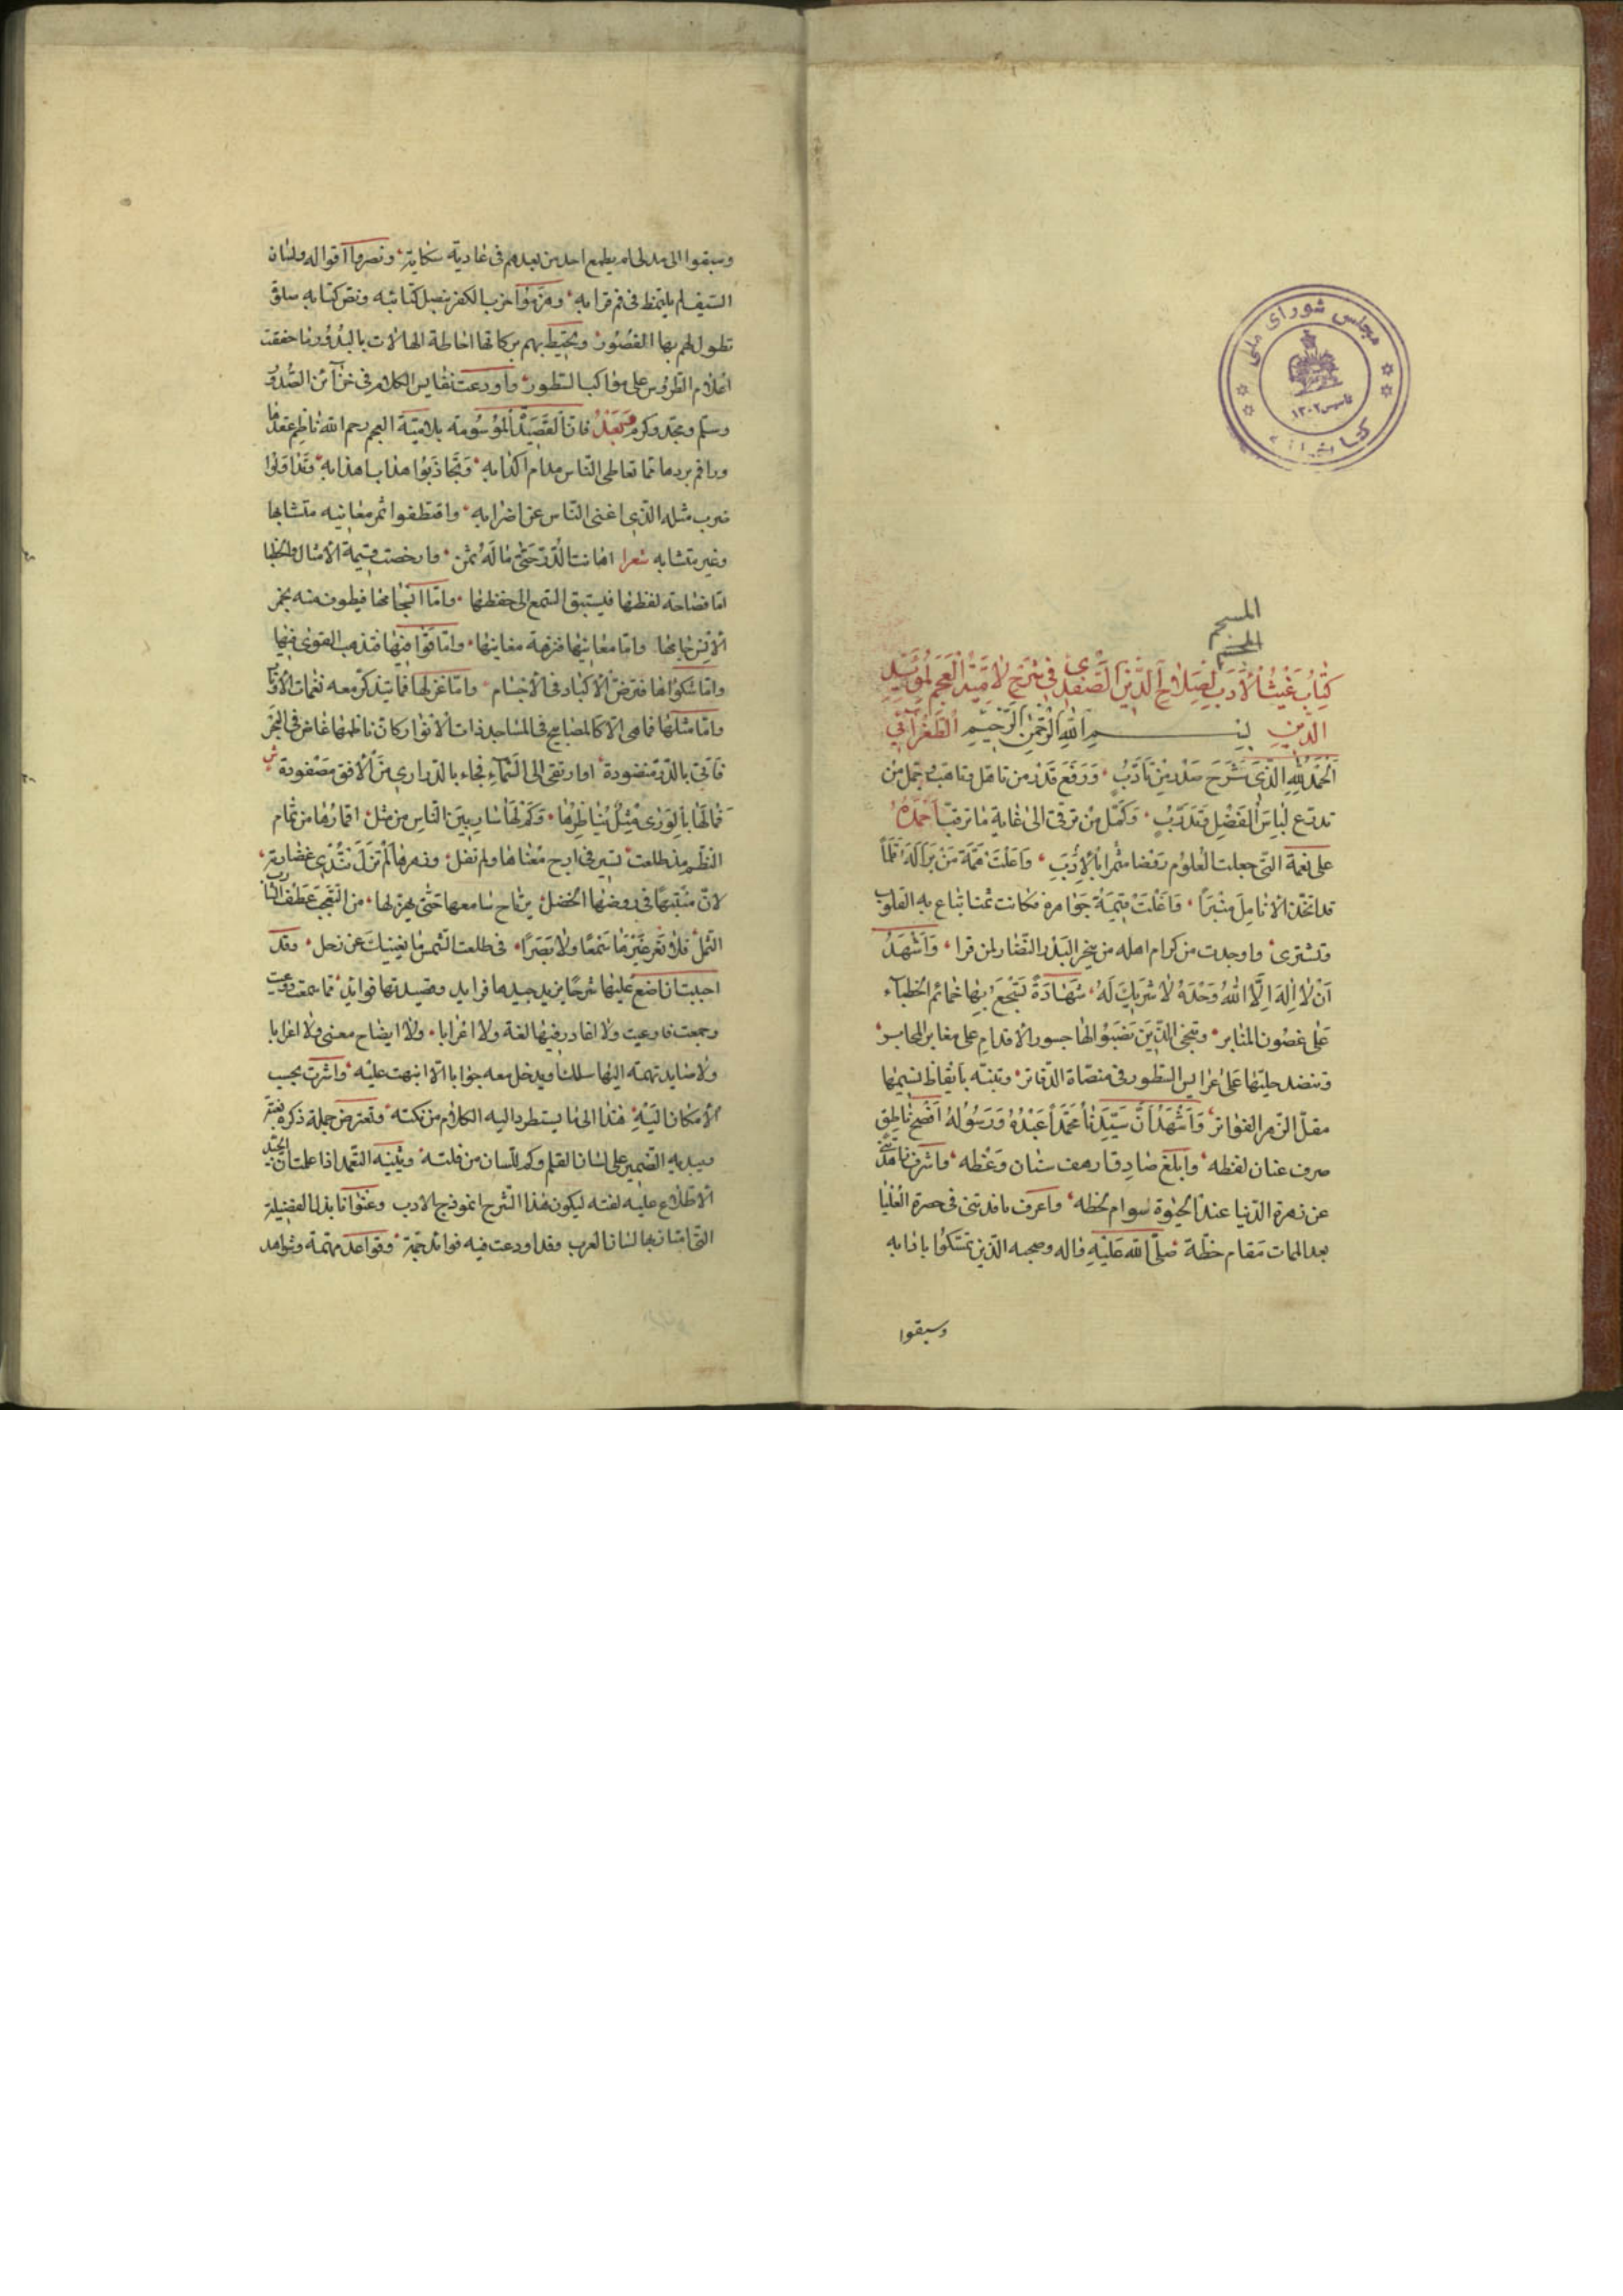 مجلس شورای ملی
تاسیس ۱۳۰۲
المسجم
المنسجم
كتاب غيث الادب لصلاح الدين الصفدي في شرح لامية العجم لمؤيد
الدين الطغرائي
بسم الله الرحمن الرحيم
الحمد لله الذي شرح صدر من تأدب ورفع قدر من تاهل وتاهب وجمل من
تدرع لباس الفضل وتدرب وكمل من ترقى الى غاية ما ترقب احمده
على نعمة التي جعلت العلوم روضا مثمرا بالادب واعلت همة من يرا له قلما
قد اتخذ الانامل منبرا واغلت قيمة جواهره فكانت ثمنا تباع به القلوب
وتشترى واوجدت من كرام اهله من يخير البدر النضار لمن قرا واشهد
ان لا اله الا الله وحده لا شريك له شهادة تسجع بها حمائم الخطباء
على غصون المنابر وتنجي الذين نصبوا لها جسور الاقدام على مغابر المحابر
وتنضد حليتها على عرايس السطور في منصاة الدفاتر وتنبه بايقاظ نسيمها
مقل الزهر الفواتر واشهد ان سيدنا محمدا عبده ورسوله افصح ناطق
صرف عنان لفظه وابلغ صادق ارهف سنان وعظه واشرف زاهد
عن زهرة الدنيا عند الحيوة سوام لحظه واعرف
بعد الممات مقام حظه صلى الله عليه واله وصحبه الذين تمسكوا بادابه
وسبقوا
وسبقوا الى مدى لم يطمع احد من بعدهم في غاديه سكابه ونصروا اقواله ولسان
السيف لم يلتمظ في فم قرابه وهزموا حزب الكفر بنصل كتائبه ونص كتابه صلوة
تطول لهم بها القصور ويحيط بهم بركاتها احاطة الهالات بالبدور ما خفقت
اعلام الطروس على مواكب السطور واودعت نفايس الكلام في خزائن الصدور
وسلم ومجد وكرم وبعد فان القصيدة الموسومة بلامية العجم رحم الله ناظم عقدها
وراقم بردها مما تعاطى الناس مدام اكوابه وتجاذبوا هداب اهدابه وتداولوا
ضرب مثله الذي اغنى الناس عن اضرابه واقتطفوا ثمر معانيه متشابها
وغير متشابه شعرا اهانت الدر حتى ما له ثمن وارخصت قيمة الامثال والخطبا
اما فصاحة لفظها فيستبق السمع الى حفظها واما انسجامها فيطوف منه بخمر
الانس جامها واما معانيها فنزهة معانيها واما قوافيها فتذهب القوى فيها
واما شكواها فترض الاكباد في الاجسام واما غزلها فما يتذكر معه نغمات الاوتار
واما مثلها فما هي الا كالمصابيح في المساجد ذات الانوار كان ناظمها غاص في البحر
فاتي بالدر منضودة او ارتقى الى السماء فجاء بالدراري من الافق مصفودة
فما لها بالورى مثل يناظرها وكم لها سار بين الناس من مثل اقمارها من تمام
النظم مذ طلعت تسير في اوج معناها ولم تفل وزهرها لم تزل تندى غضارته
لان منبتها في روضها الخضل يرتاح سامعها حتى يهز لها من التعجب عطف الشارب
الثمل فلا تعر غيرها سمعا ولا بصرا في طلعة الشمس ما يغنيك عن زحل وقد
احببت ان اضع عليها شرحا يزيد جيدها فرايد وقصيدتها فوائد مما سمعت وعيت
وجمعت فاوعيت ولا اغادر فيها لغة ولا اعرابا ولا ايضاح معنى ولا اغرابا
ولا ما يد تهمته اليها سلك ويدخل معه جوابا الا انبهت عليه واشرت بحسب
الامكان اليه هذا الى ما يستطرد اليه الكلام من نكته وتعترض جملة ذكره
ويبديه الضمير على لسان القلم وكم للسان من فلتة ويثنيه التعمد اذا علمت ان
الاطلاع عليه لفته ليكون هذا الشرح انموذج الادب وعنوانا بذا الفضيلة
التي امتاز بها لسان العرب وقد اودعت فيه فوائد جمة وقواعد مهمة وشواهد